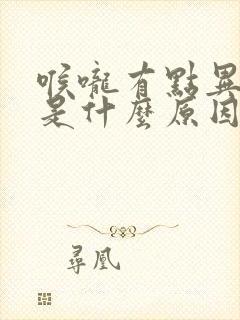 喉嚨有點異
是什麼原因
尋凰